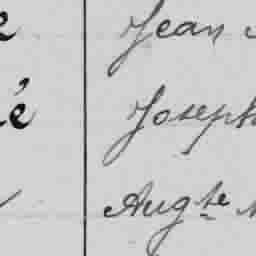 e Jean
é Joseph
Augte